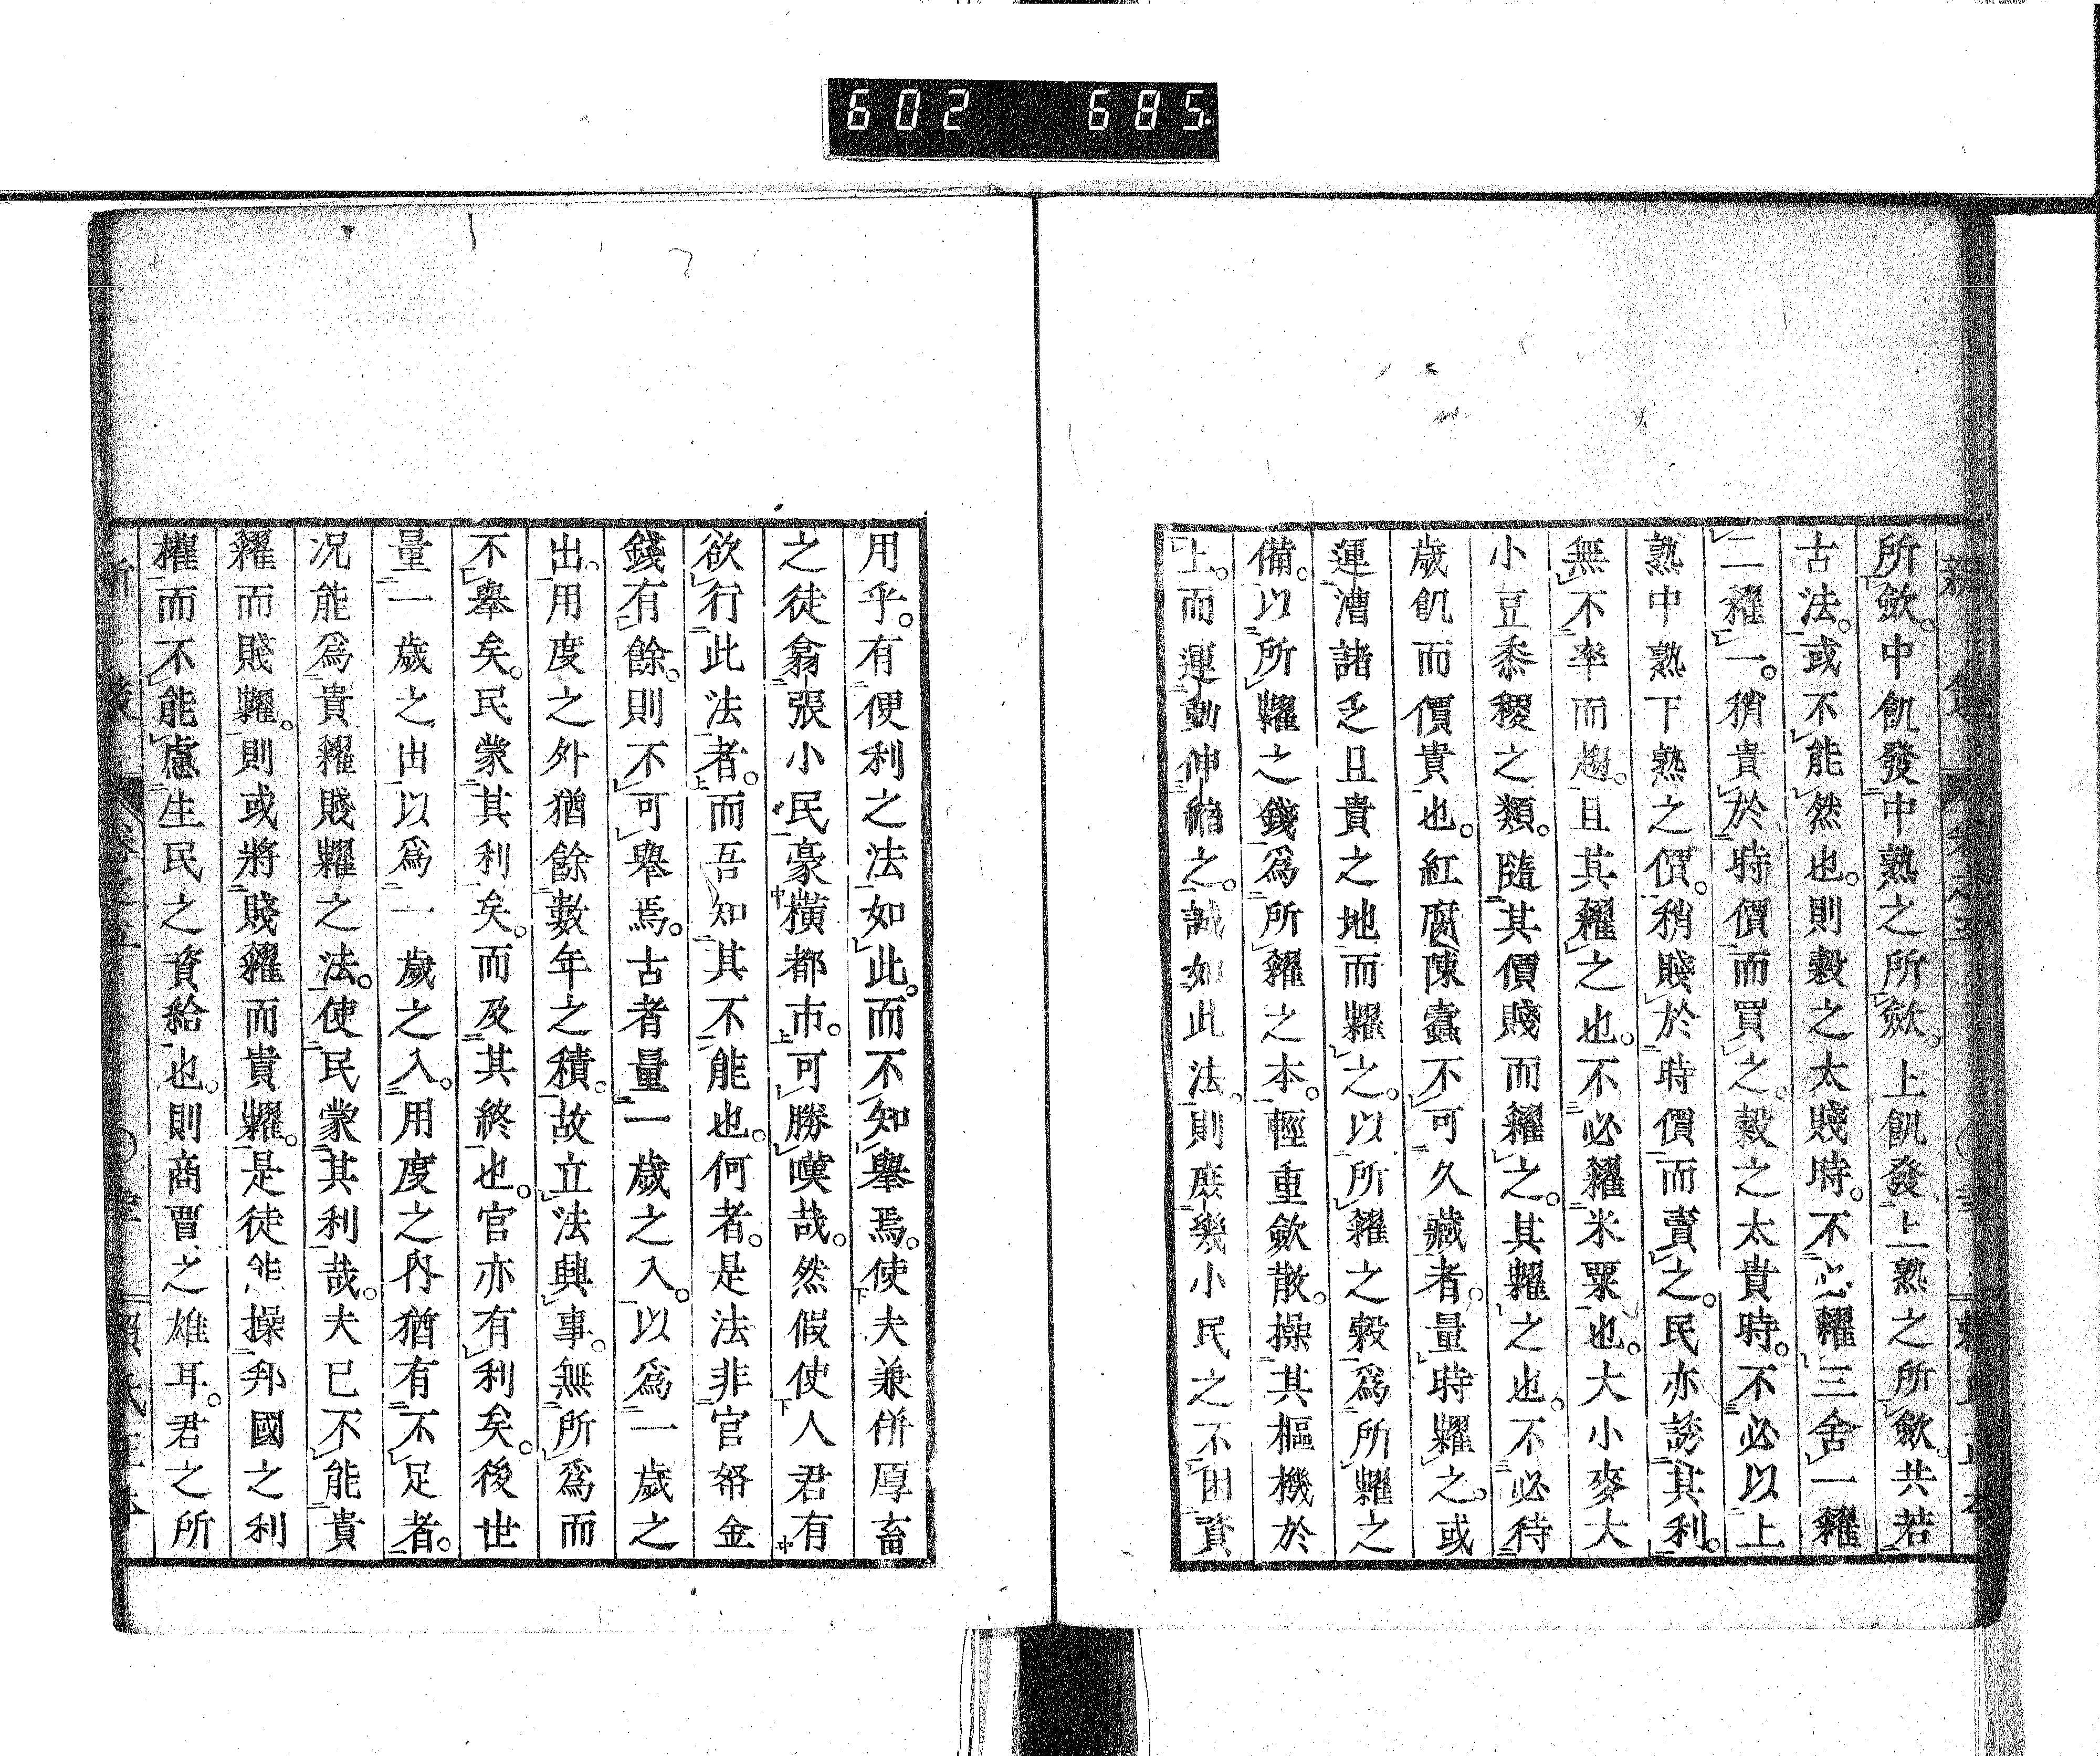 602 685.
所斂。中飢發中熟之所斂。上飢發上熟之所斂。共若
古法。或不能然也。則穀之太賤時。不必糴三舍一糴
二糴一。稍貴於時價而買之。穀之太貴時。不必以上
熟中熟下熟之價。稍賤於時價而賣之。民亦誘其利。
無不率而趨。且其糴之也。不必糴米粟也。大小麥大
小豆黍稷之類。隨其價賤而糴之。其糶之也。不必待
歲飢而價貴也。紅腐陳蠹不可久藏者。量時糶之。或
運漕諸乏且貴之地而糶之。以所糴之穀爲所糶之
備。以所糶之錢爲所糴之本。輕重斂散。操其樞機於
上。而運動伸縮之。誠如此法。則庶幾小民之不困資
用乎。有便利之法如此。而不知舉焉。使夫兼併厚畜
之徒翕張小民豪橫都市。可勝嘆哉。然假使人君有
欲行此法者。而吾知其不能也。何者。是法非官帑金
錢有餘。則不可舉焉。古者量一歲之入。以爲一歲之
出。用度之外猶餘數年之積。故立法興事。無所爲而
不舉矣。民蒙其利矣。而及其終也。官亦有利矣。後世
量一歲之出以爲一歲之入。用度之內猶有不足者。
况能爲貴糴賤糶之法。使民蒙其利哉。夫已不能貴
糴而賤糶。則或將賤糴而貴糶。是徒能操邦國之利
權而不能慮生民之資給也。則商賈之雄耳。君之所